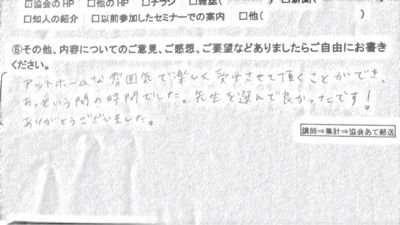 □協会のHP □他のHP □チラシ □雑誌( ) □新聞( )
□知人の紹介 □以前参加したセミナーでの案内 □他( )
⑥その他、内容についてのご意見、ご感想、ご要望などありましたらご自由にお書き
ください。
アットホームな雰囲気で楽しく受けさせて頂くことができ、
あっという間の時間でした。先生を選んで良かったです!
ありがとうございました。
講師⇒集計⇒協会あて郵送